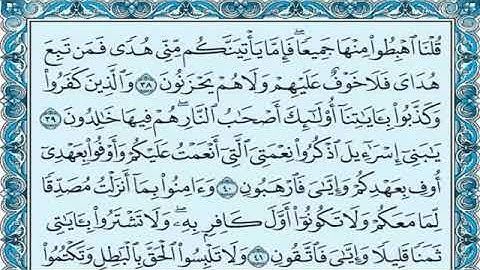 قُلْنَا ٱهْبِطُوا۟ مِنْهَا جَمِيعًا ۖ فَإِمَّا يَأْتِيَنَّكُم مِّنِّى هُدًى فَمَن تَبِعَ
هُدَاىَ فَلَا خَوْفٌ عَلَيْهِمْ وَلَا هُمْ يَحْزَنُونَ ٣٨ وَٱلَّذِينَ كَفَرُوا۟
وَكَذَّبُوا۟ بِـَٔايَـٰتِنَآ أُو۟لَـٰٓئِكَ أَصْحَـٰبُ ٱلنَّارِ ۖ هُمْ فِيهَا خَـٰلِدُونَ ٣٩
يَـٰبَنِىٓ إِسْرَٰٓءِيلَ ٱذْكُرُوا۟ نِعْمَتِىَ ٱلَّتِىٓ أَنْعَمْتُ عَلَيْكُمْ وَأَوْفُوا۟ بِعَهْدِىٓ
أُوفِ بِعَهْدِكُمْ وَإِيَّـٰىَ فَٱرْهَبُونِ ٤٠ وَءَامِنُوا۟ بِمَآ أَنزَلْتُ مُصَدِّقًا
لِّمَا مَعَكُمْ وَلَا تَكُونُوٓا۟ أَوَّلَ كَافِرٍۭ بِهِۦ ۖ وَلَا تَشْتَرُوا۟ بِـَٔايَـٰتِى
ثَمَنًا قَلِيلًا وَإِيَّـٰىَ فَٱتَّقُونِ ٤١ وَلَا تَلْبِسُوا۟ ٱلْحَقَّ بِٱلْبَـٰطِلِ وَتَكْتُمُوا۟